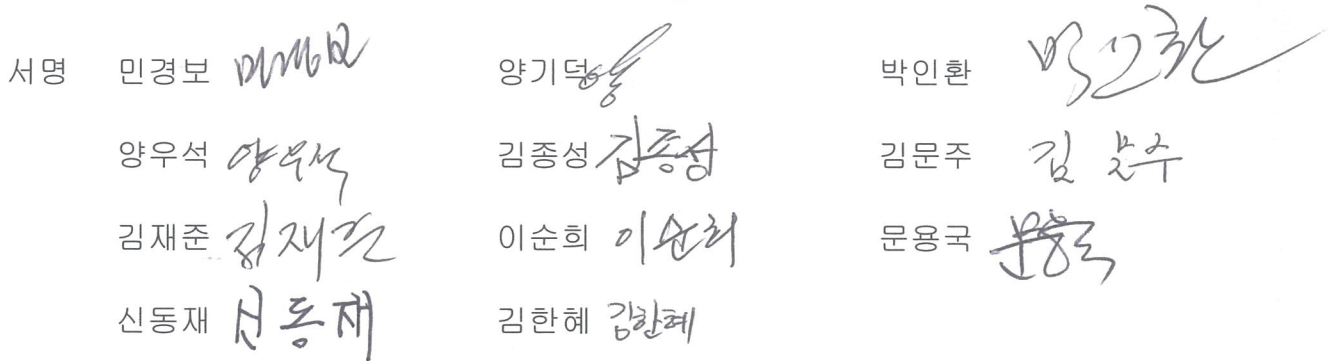 서명 민경보 민경보 양기덕 양 박인환 박인환
양우석 양우석 김종성 김종성 김문주 김문주
김재준 김재준 이순희 이순희 문용국 문용국
신동재 신동재 김한혜 김한혜